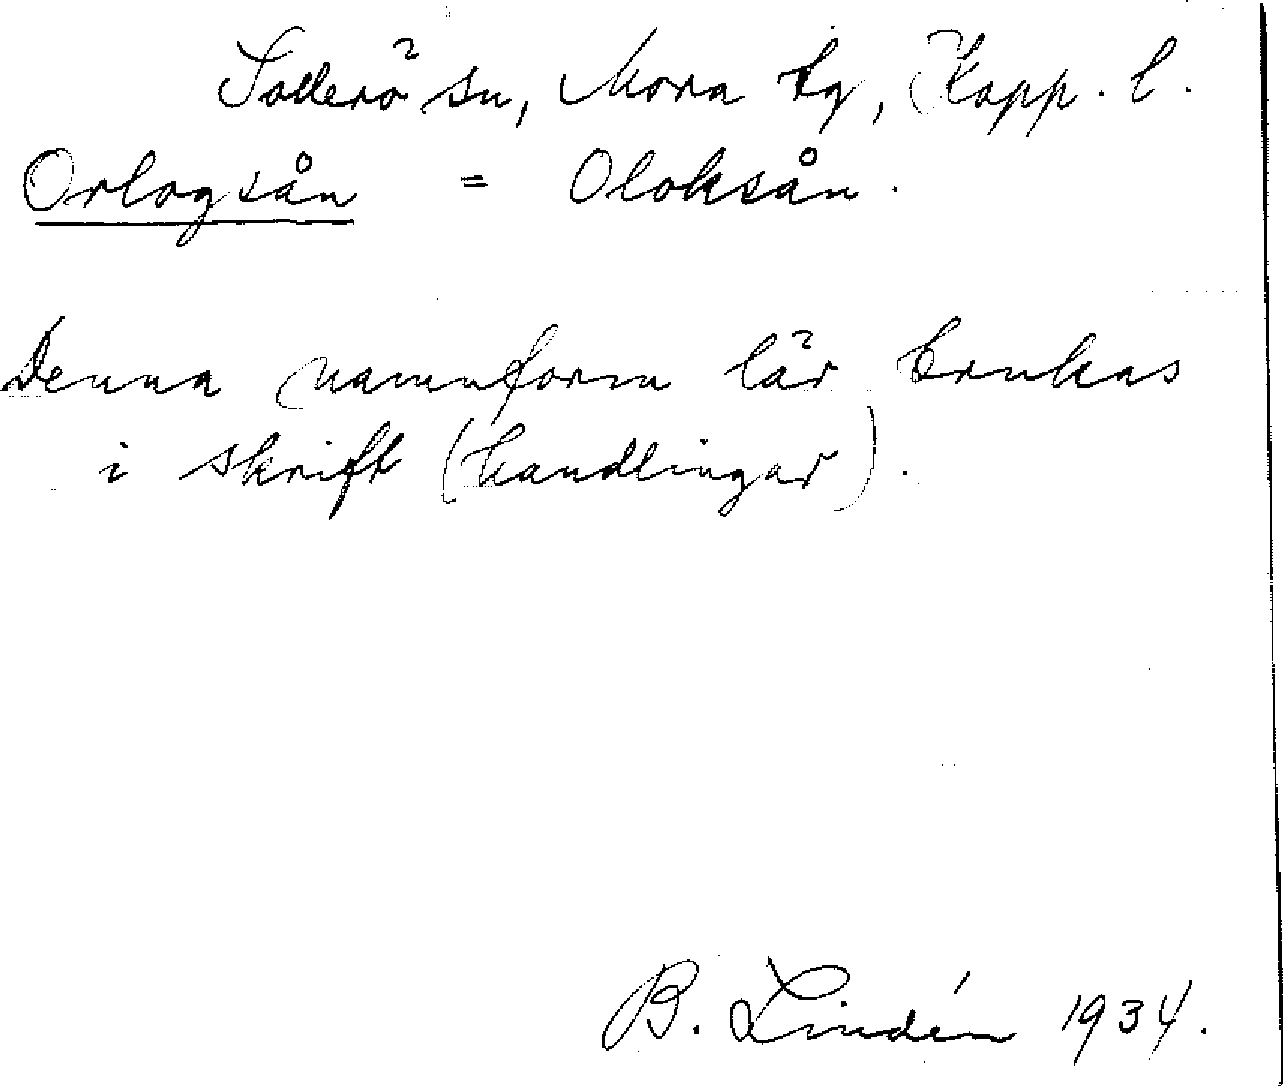 Sollerö sn, Mora tg, Kopp. l.
Orlogsån = Oloksån.
Denna namnform lär brukas
i skrift (handlingar).
B. Lindén 1934.